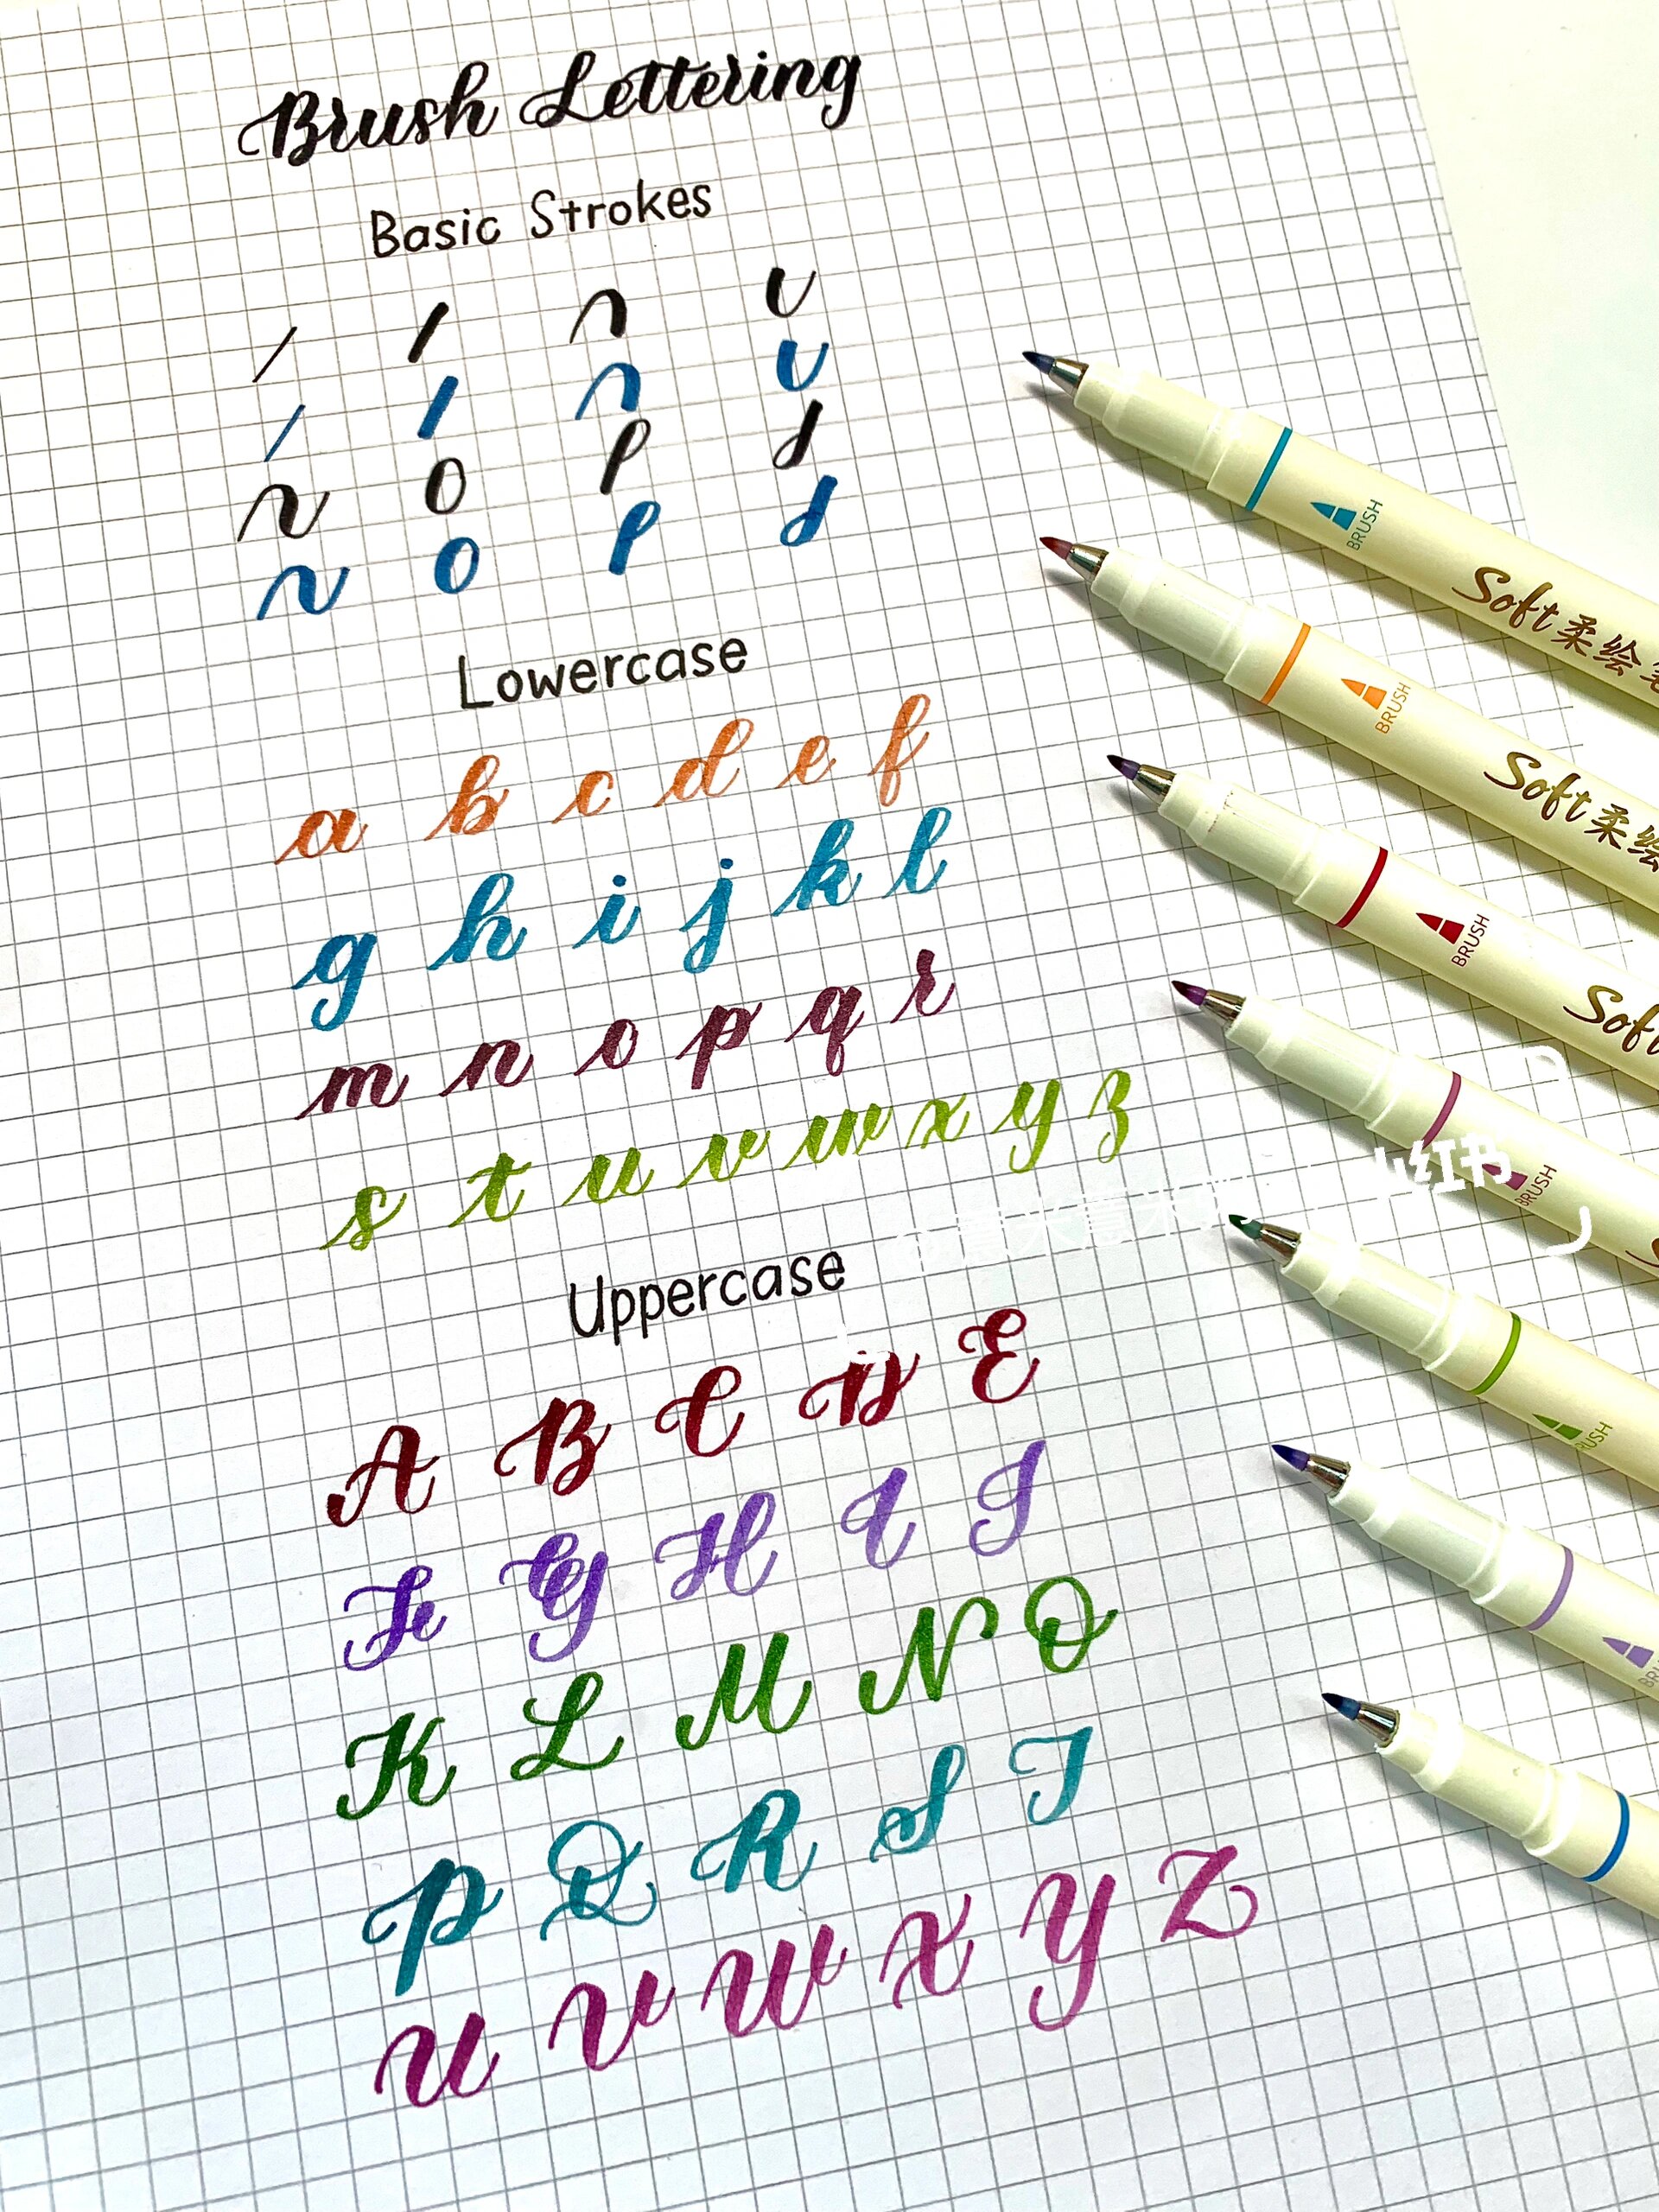 Brush Lettering
Basic Strokes
Lowercase
a b c d e f
g h i j k l
m n o p q r
s t u v w x y z
Uppercase
A B C D E
F G H I J
K L M N O
P Q R S T
U V W X Y Z
BRUSH
Soft柔绘
BRUSH
Soft柔绘
BRUSH
Soft
BRUSH
小红书
BRUSH